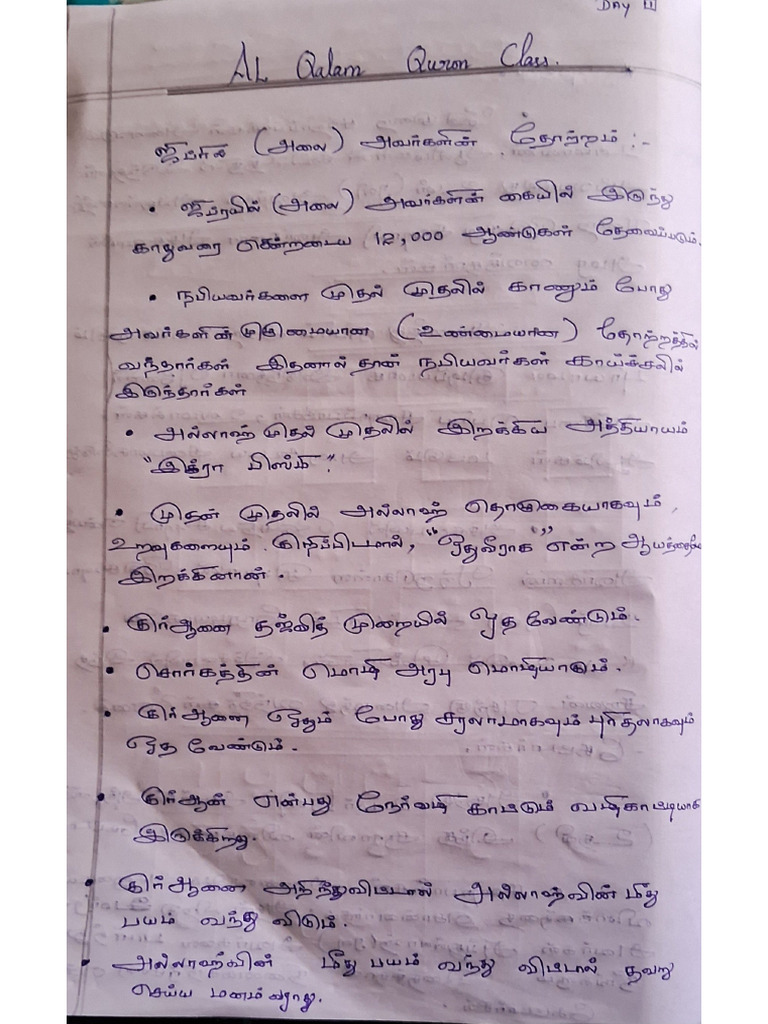 Day 11
AL Qalam Quron Class.
ஜிப்ரீல் (அலை) அவர்களின் தோற்றம் :-
• ஜிப்ரயில் (அலை) அவர்களின் கையில் இருந்து
காதுவரை சென்றடைய 12,000 ஆண்டுகள் தேவைப்படும்.
• நபியவர்களை முதல் முதலில் காணும் போது
அவர்களின் முழுமையான (உண்மையான) தோற்றத்தில்
வந்தார்கள் இதனால் தான் நபியவர்கள் காய்ச்சலில்
இருந்தார்கள்
• அல்லாஹ் முதல் முதலில் இறக்கிய அத்தியாயம்
"இக்ரா பிஸ்மி."
• முதன் முதலில் அல்லாஹ் தொழுகையாகவும்,
உறவுகளையும் குறிப்பிடாமல், "ஓதுவீராக" என்ற ஆயத்தை
இறக்கினான்.
• குர்ஆனை தஜ்வீத் முறையில் ஓத வேண்டும்.
• சொர்கத்தின் மொழி அரபு மொழியாகும்.
• குர்ஆனை ஓதும் போது சரலாமாகவும் புரிதலாகவும்
ஓத வேண்டும்.
• குர்ஆன் என்பது நேர்வழி காட்டும் வழிகாட்டியாக
இருக்கிறது.
• குர்ஆனை அறிந்துவிட்டால் அல்லாஹ்வின் மீது
பயம் வந்து விடும்.
• அல்லாஹ்வின் மீது பயம் வந்து விட்டால் தவறு
செய்ய மனம் வராது.